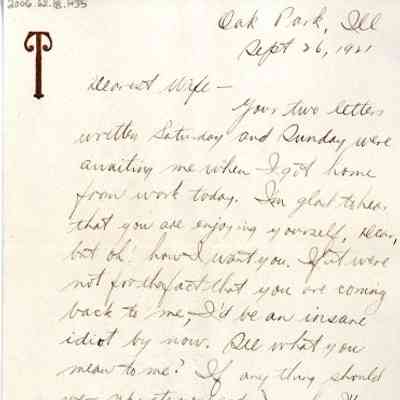 2006.62.18.H35
T
Oak Park, Ill
Sept 26, 1921
Dearest Wife —
Your two letters
written Saturday and Sunday were
awaiting me when I got home
from work today. I'm glad to hear
that you are enjoying yourself, dear,
but oh! how I want you. If it were
not for the fact that you are coming
back to me, I'd be an insane
idiot by now. See what you
mean to me? If any thing should